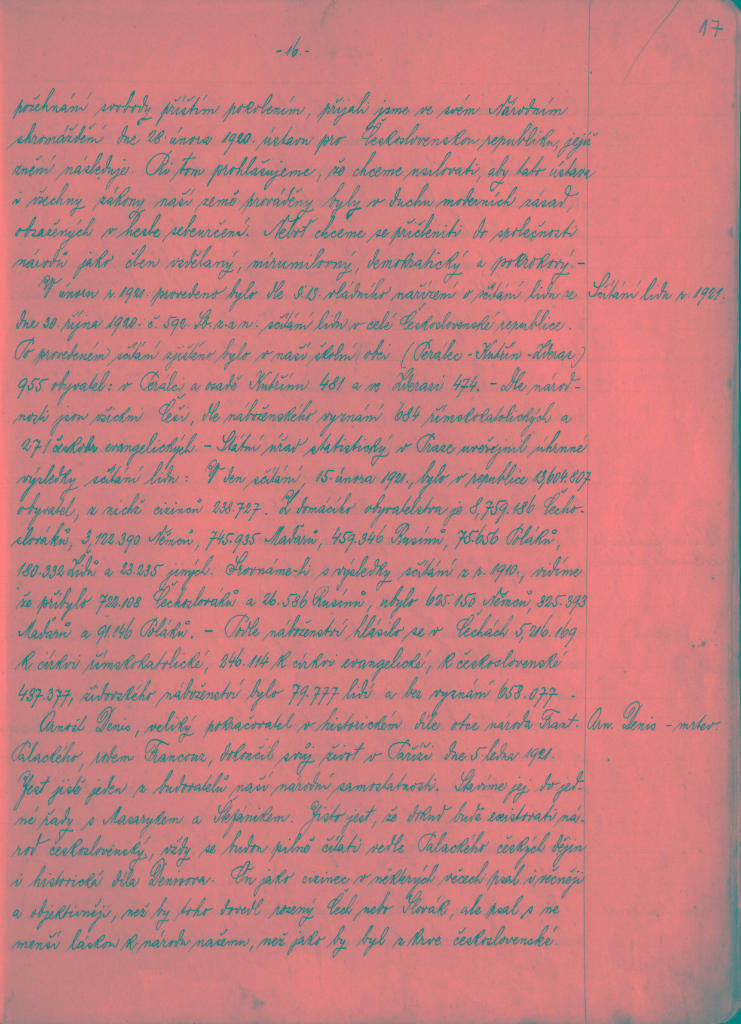 17
-16.-
požehnání svobody příštím pokolením, přijali jsme ve svém Národním
shromáždění dne 28. února 1920. ústavu pro Československou republiku, jejíž
znění následuje. Při tom prohlašujeme, že chceme usilovati, aby tato ústava
i všechny zákony naší země prováděny byly v duchu moderních zásad,
obsažených v hesle sebeurčení. Neboť chceme se přičleniti do společnosti
národů jako člen vzdělaný, mírumilovný, demokratický a pokrokový. -
V únoru r. 1921. provedeno bylo dle §.13. vládního nařízení o sčítání lidu ze
Sčítání lidu r. 1921.
dne 30. října 1920. č. 592. Sb. z. a n. sčítání lidu v celé Československé republice.
Po provedeném sčítání zjištěno bylo v naší školní obci (Perálec - Kutřín - Zderaz)
955 obyvatel: v Perálci a osadě Kutříně 481 a ve Zderazi 474. - Dle národ-
nosti jsou všichni Češi, dle náboženského vyznání 684 římskokatolických a
271 českobr. evangelických. - Státní úřad statistický v Praze uveřejnil úhrnné
výsledky sčítání lidu: V den sčítání, 15. února 1921., bylo v republice 13,604.807
obyvatel, z nichž cizinců 238.727. Z domácího obyvatelstva je 8,759.186 Čecho-
slováků, 3,122.390 Němců, 745.935 Maďarů, 459.346 Rusínů, 75.656 Poláků,
180.332 Židů a 23.235 jiných. Srovnáme-li s výsledky sčítání z r. 1910., vidíme
že přibylo 722.108 Čechoslováků a 26.586 Rusínů, ubylo 625.150 Němců, 325.393
Maďarů a 91.146 Poláků. - Podle náboženství hlásilo se v Čechách 5,216.169
k církvi římskokatolické, 246.114 k církvi evangelické, k československé
437.377, židovského náboženství bylo 79.777 lidí a bez vyznání 658.077.
Arnošt Denis, veliký pokračovatel v historickém díle otce národa Frant.
Arn. Denis - mrtev.
Palackého, rodem Francouz, dokončil svůj život v Paříži dne 5. ledna 1921.
Jest jistě jeden z budovatelů naší národní samostatnosti. Stavíme jej do jed-
né řady s Masarykem a Štefánikem. Jisto jest, že dokud bude existovati ná-
rod československý, vždy se budou pilně čítati vedle Palackého českých dějin
i historická díla Denisova. On jako cizinec v některých věcech psal i věcněji
a objektivněji, než by toho dovedl rozený Čech nebo Slovák, ale psal s ne
menší láskou k národu našemu, než jako by byl z krve československé.